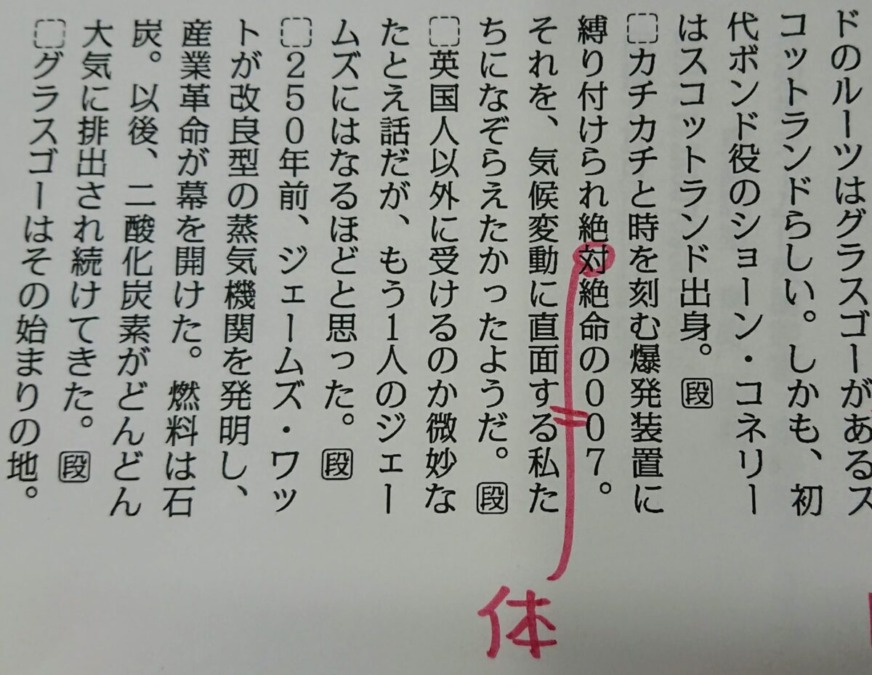 ドのルーツはグラスゴーがあるス
コットランドらしい。しかも、初
代ボンド役のショーン・コネリー
はスコットランド出身。段
カチカチと時を刻む爆発装置に
縛り付けられ絶対絶命の007。
それを、気候変動に直面する私た
ちになぞらえたかったようだ。段
英国人以外に受けるのか微妙な
たとえ話だが、もう1人のジェー
ムズにはなるほどと思った。段
250年前、ジェームズ・ワッ
トが改良型の蒸気機関を発明し、
産業革命が幕を開けた。燃料は石
炭。以後、二酸化炭素がどんどん
大気に排出され続けてきた。段
グラスゴーはその始まりの地。
体